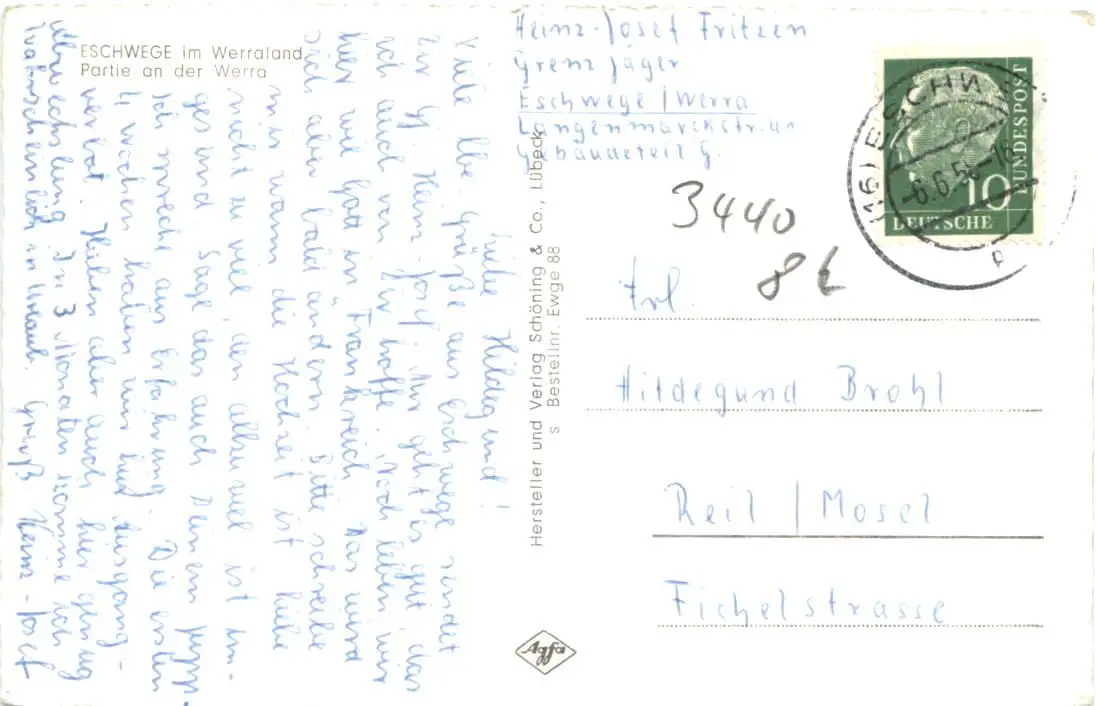 ESCHWEGE im Werraland
Partie an der Werra
Liebe Hildegund!
Viele lbe. Grüße aus Eschwege sendet
Dir Heinz-Josef. Mir geht es gut das
ich auch von Dir hoffe. Noch leben wir
hier wie Gott in Frankreich das wird
sich aber bald ändern. Bitte schreibe
mir wann die Hochzeit ist. Liebe
nicht zu viel, den allzuviel ist un-
gesund. Sage das auch Deinem
Ich spreche aus Erfahrung. Die ersten
4 Wochen haben wir Ausgang-
verbot. Haben aber auch hier genug
Abwechslung. In 3 Monaten komme ich
wahrscheinlich in Urlaub. Gruß Heinz-Josef
Heinz-Josef Fritzen
Grenzjäger
Eschwege/Werra
Langenmarckstr.
Gebäudeteil G.
Hersteller und Verlag Schöning & Co., Lübeck
s Bestellnr. Ewge 88
Agfa
DEUTSCHE
BUNDESPOST
10
(16) ESCHW
-6.6.5 -16
3440
Frl.
Hildegund Brohl
Reil / Mosel
Fichelstrasse